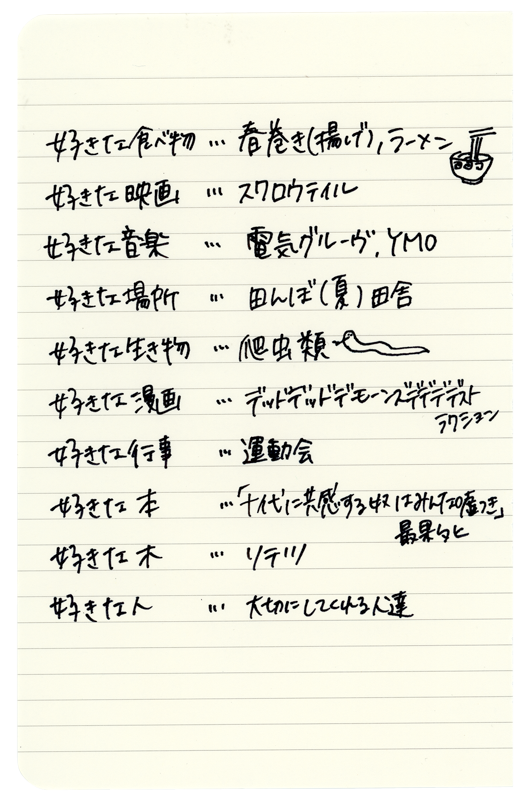 好きな食べ物 … 春巻き(揚げ),ラーメン
好きな映画 … スワロウテイル
好きな音楽 … 電気グルーヴ,YMO
好きな場所 … 田んぼ(夏)田舎
好きな生き物 … 爬虫類
好きな漫画 … デッドデッドデーモンズデデデデデスト
ラクション
好きな行事 … 運動会
好きな本 …「十代に共感する奴はみんな嘘つき」
最果タヒ
好きな木 … ソテツ
好きな人 … 大切にしてくれる人達